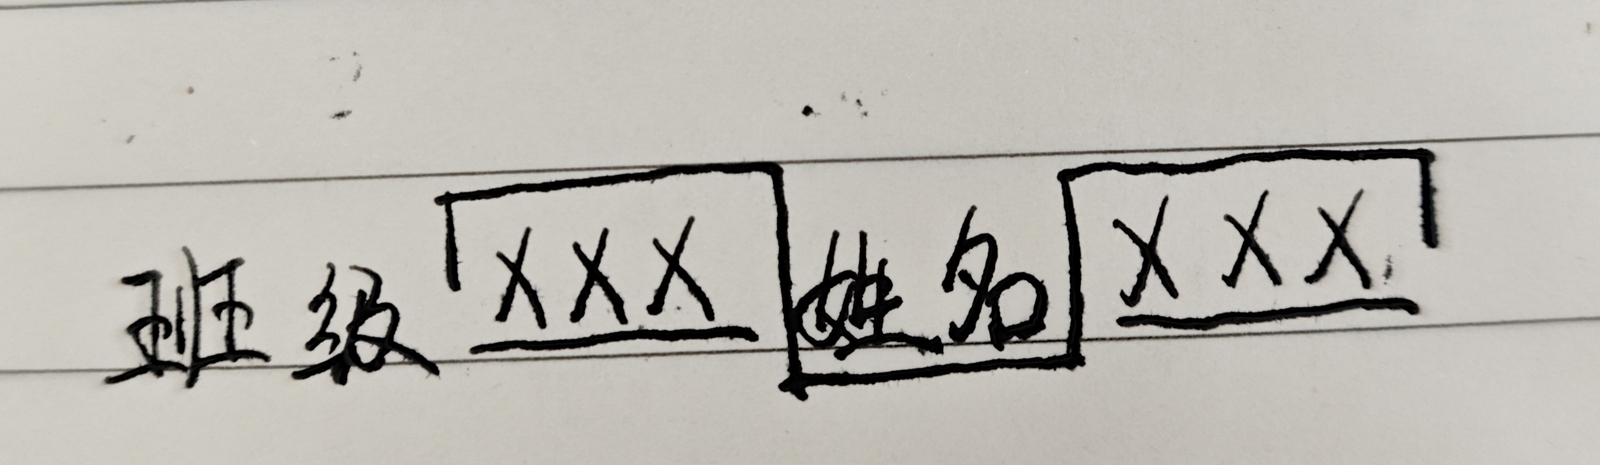 班级 XXX 姓名 XXX